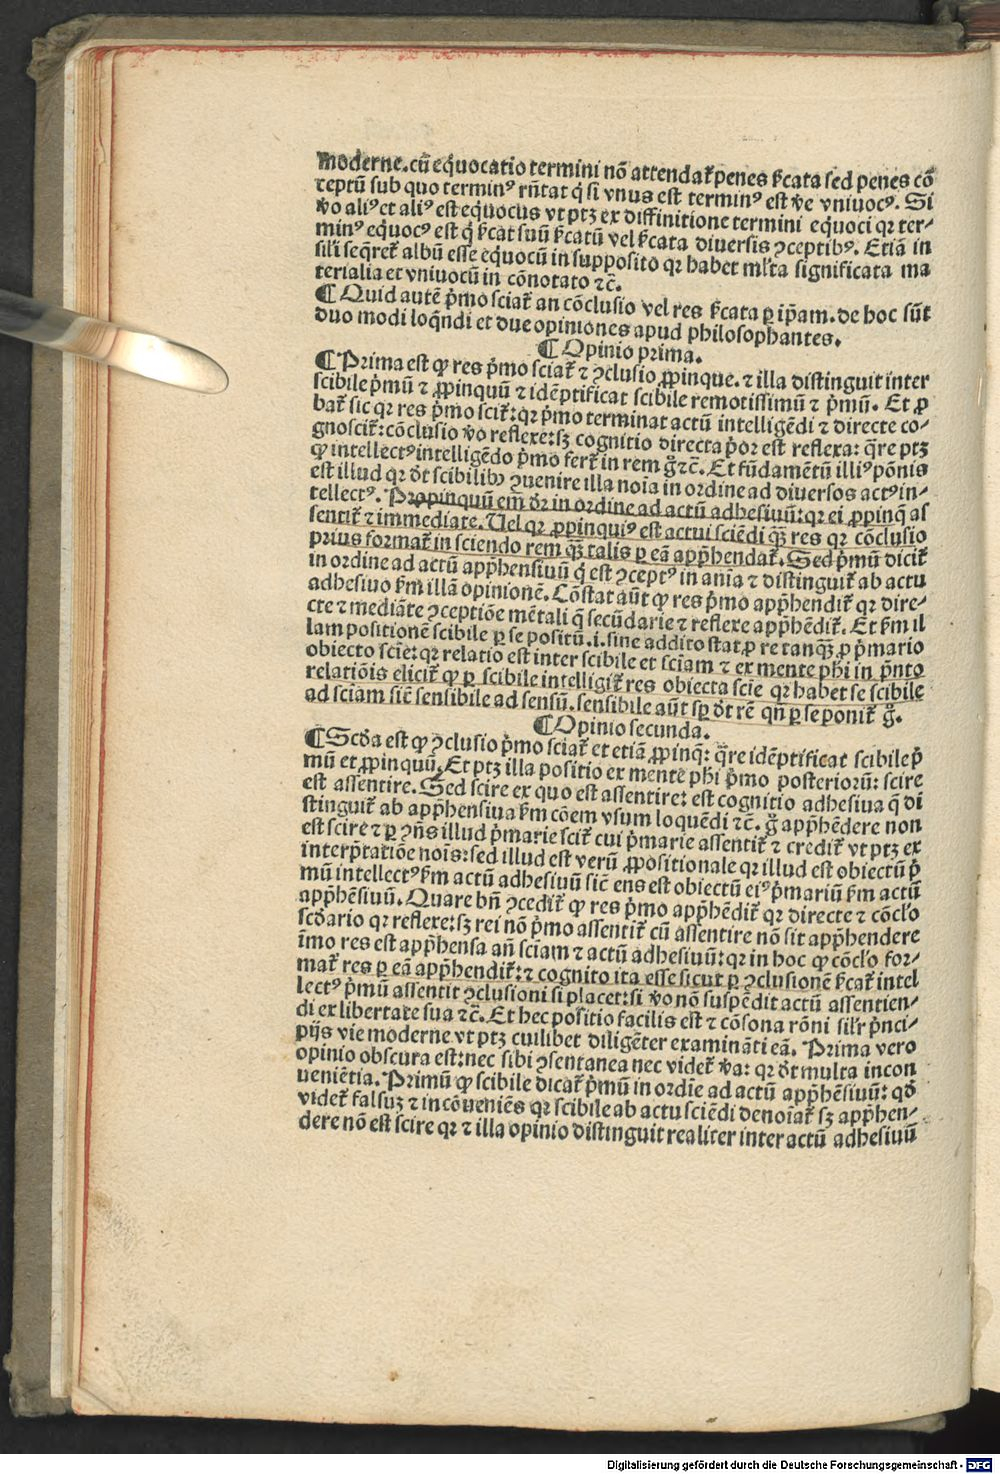 moderne. cũ eq̃uocatio termini nõ attendat᷑ penes ſ̃cata sed penes cõ
ceptũ sub quo terminꝰ rñtat q̃ si vnus est terminꝰ est ṽe vniuocꝰ. Si
ṽo aliꝰ et aliꝰ est eq̃uocus vt ptꝫ ex diffinitione termini eq̃uoci qꝛ ter⸗
minꝰ eq̃uocꝰ est q̃ ſ̃cat suũ ſ̃catũ vel ſ̃cata diuersis ꝯceptibꝰ. Etiã in
sil'i seq̃ret᷑ albũ esse equocũ in supposito qꝛ habet ml'ta significata ma
terialia et vniuocũ in cõnotato ⁊c̃.
¶ Quid autẽ p̃mo sciat᷑ an cõclusio vel res ſ̃cata ꝑ ip̃am. de hoc sũt
duo modi loq̃ndi et due opiniones apud philosophantes.
¶ Opinio prima.
¶ Prima est ꝙ res p̃mo sciat᷑ ⁊ ꝯclusio ꝓpinque. ⁊ illa distinguit inter
scibile p̃mũ ⁊ ꝓpinquũ ⁊ idẽptificat scibile remotissimũ ⁊ p̃mũ. Et ꝓ
bat᷑ sic qꝛ res p̃mo scit᷑: qꝛ p̃mo terminat actũ intelligẽdi ⁊ directe co⸗
gnoscit᷑: cõclusio ṽo reflexe: sꝫ cognitio directa p̃or est reflexa: q̃re ptꝫ
ꝙ intellectꝰ intelligẽdo p̃mo fert᷑ in rem g̃ ⁊c̃. Et fũdamẽtũ illiꝰ põnis
est illud qꝛ d̃t scibilibꝰ ꝯuenire illa noĩa in ordine ad diuersos actꝰ in⸗
tellectꝰ. Propinquũ em̃ d̃r in ordine ad actũ adhesiuũ: qꝛ ei ꝓpinq̃ as
sentit᷑ ⁊ immediate. Uel qꝛ ꝓpinquiꝰ est actui sciẽdi q̃ꝫ res qꝛ cõclusio
prius format᷑ in sciendo rem q̃ꝫ talis ꝑ eã app̃hendat᷑. Sed p̃mũ dicit᷑
in ordine ad actũ app̃hensiuũ q̃ est ꝯceptꝰ in aĩa ⁊ distinguit᷑ ab actu
adhesiuo ẜm illã opinionẽ. Cõstat aũt ꝙ res p̃mo app̃hendit᷑ qꝛ dire⸗
cte ⁊ mediãte ꝯceptiõe mẽtali q̃ secũdarie ⁊ reflexe app̃hẽdit᷑. Et ẜm il
lam positionẽ scibile ꝑ se positũ .i. sine addito stat ꝓ re tanq̃ꝫ ꝓ p̃mario
obiecto scĩe: qꝛ relatio est inter scibile et sciam ⁊ ex mente phi in p̃nto
relatiõis elicit᷑ ꝙ ꝑ scibile intelligit᷑ res obiecta scĩe qꝛ habet se scibile
ad sciam sic̃ sensibile ad sensũ. sensibile aũt sꝑ d̃t rẽ qñ ꝑ se ponit᷑ g̃.
¶ Opinio secunda.
¶ Scd̃a est ꝙ ꝯclusio p̃mo sciat᷑ et etiã ꝓpinq̃: q̃re idẽptificat scibile p̃
mũ et ꝓpinquũ. Et ptꝫ illa positio ex mente phi p̃mo posteriorũ: scire
est assentire. Sed scire ex quo est assentire: est cognitio adhesiua q̃ di
stinguit᷑ ab app̃hensiua ẜm cõem vsum loquẽdi ⁊c̃. g̃ app̃hẽdere non
est scire ⁊ ꝑ ꝯñs illud p̃marie scit᷑ cui p̃marie assentit᷑ ⁊ credit᷑ vt ptꝫ ex
interp̃tatiõe noĩs: sed illud est verũ ꝓpositionale qꝛ illud est obiectũ p̃
mũ intellectꝰ ẜm actũ adhesiuũ sic̃ ens est obiectũ eiꝰ p̃mariũ ẜm actũ
app̃hẽsiuũ. Quare bñ ꝯcedit᷑ ꝙ res p̃mo app̃hẽdit᷑ qꝛ directe ⁊ cõcl'o
scd̃ario qꝛ reflexe: sꝫ rei nõ p̃mo assentit᷑ cũ assentire nõ sit app̃hendere
ĩmo res est app̃hensa añ sciam ⁊ actũ adhesiuũ: qꝛ in hoc ꝙ cõcl'o for⸗
mat᷑ res ꝑ eã app̃hendit᷑: ⁊ cognito ita esse sicut ꝑ ꝯclusionẽ ſ̃cat᷑ intel
lectꝰ p̃mũ assentit ꝯclusioni si placet: si ṽo nõ suspẽdit actũ assentien⸗
di ex libertate sua ⁊c̃. Et hec positio facilis est ⁊ cõsona rõni sil'r p̃nci⸗
pijs vie moderne vt ptꝫ cuilibet diligẽter examinãti eã. Prima vero
opinio obscura est: nec sibi ꝯsentanea nec videt᷑ ṽa: qꝛ d̃t multa incon
ueniẽtia. Primũ ꝙ scibile dicat᷑ p̃mũ in ordĩe ad actũ app̃hẽsiuũ: qd̃
videt᷑ falsuꝫ ⁊ incõueniẽs qꝛ scibile ab actu sciẽdi denoĩat᷑ sꝫ app̃hen⸗
dere nõ est scire qꝛ ⁊ illa opinio distinguit realiter inter actũ adhesiuũ
Digitalisierung gefördert durch die Deutsche Forschungsgemeinschaft - DFG